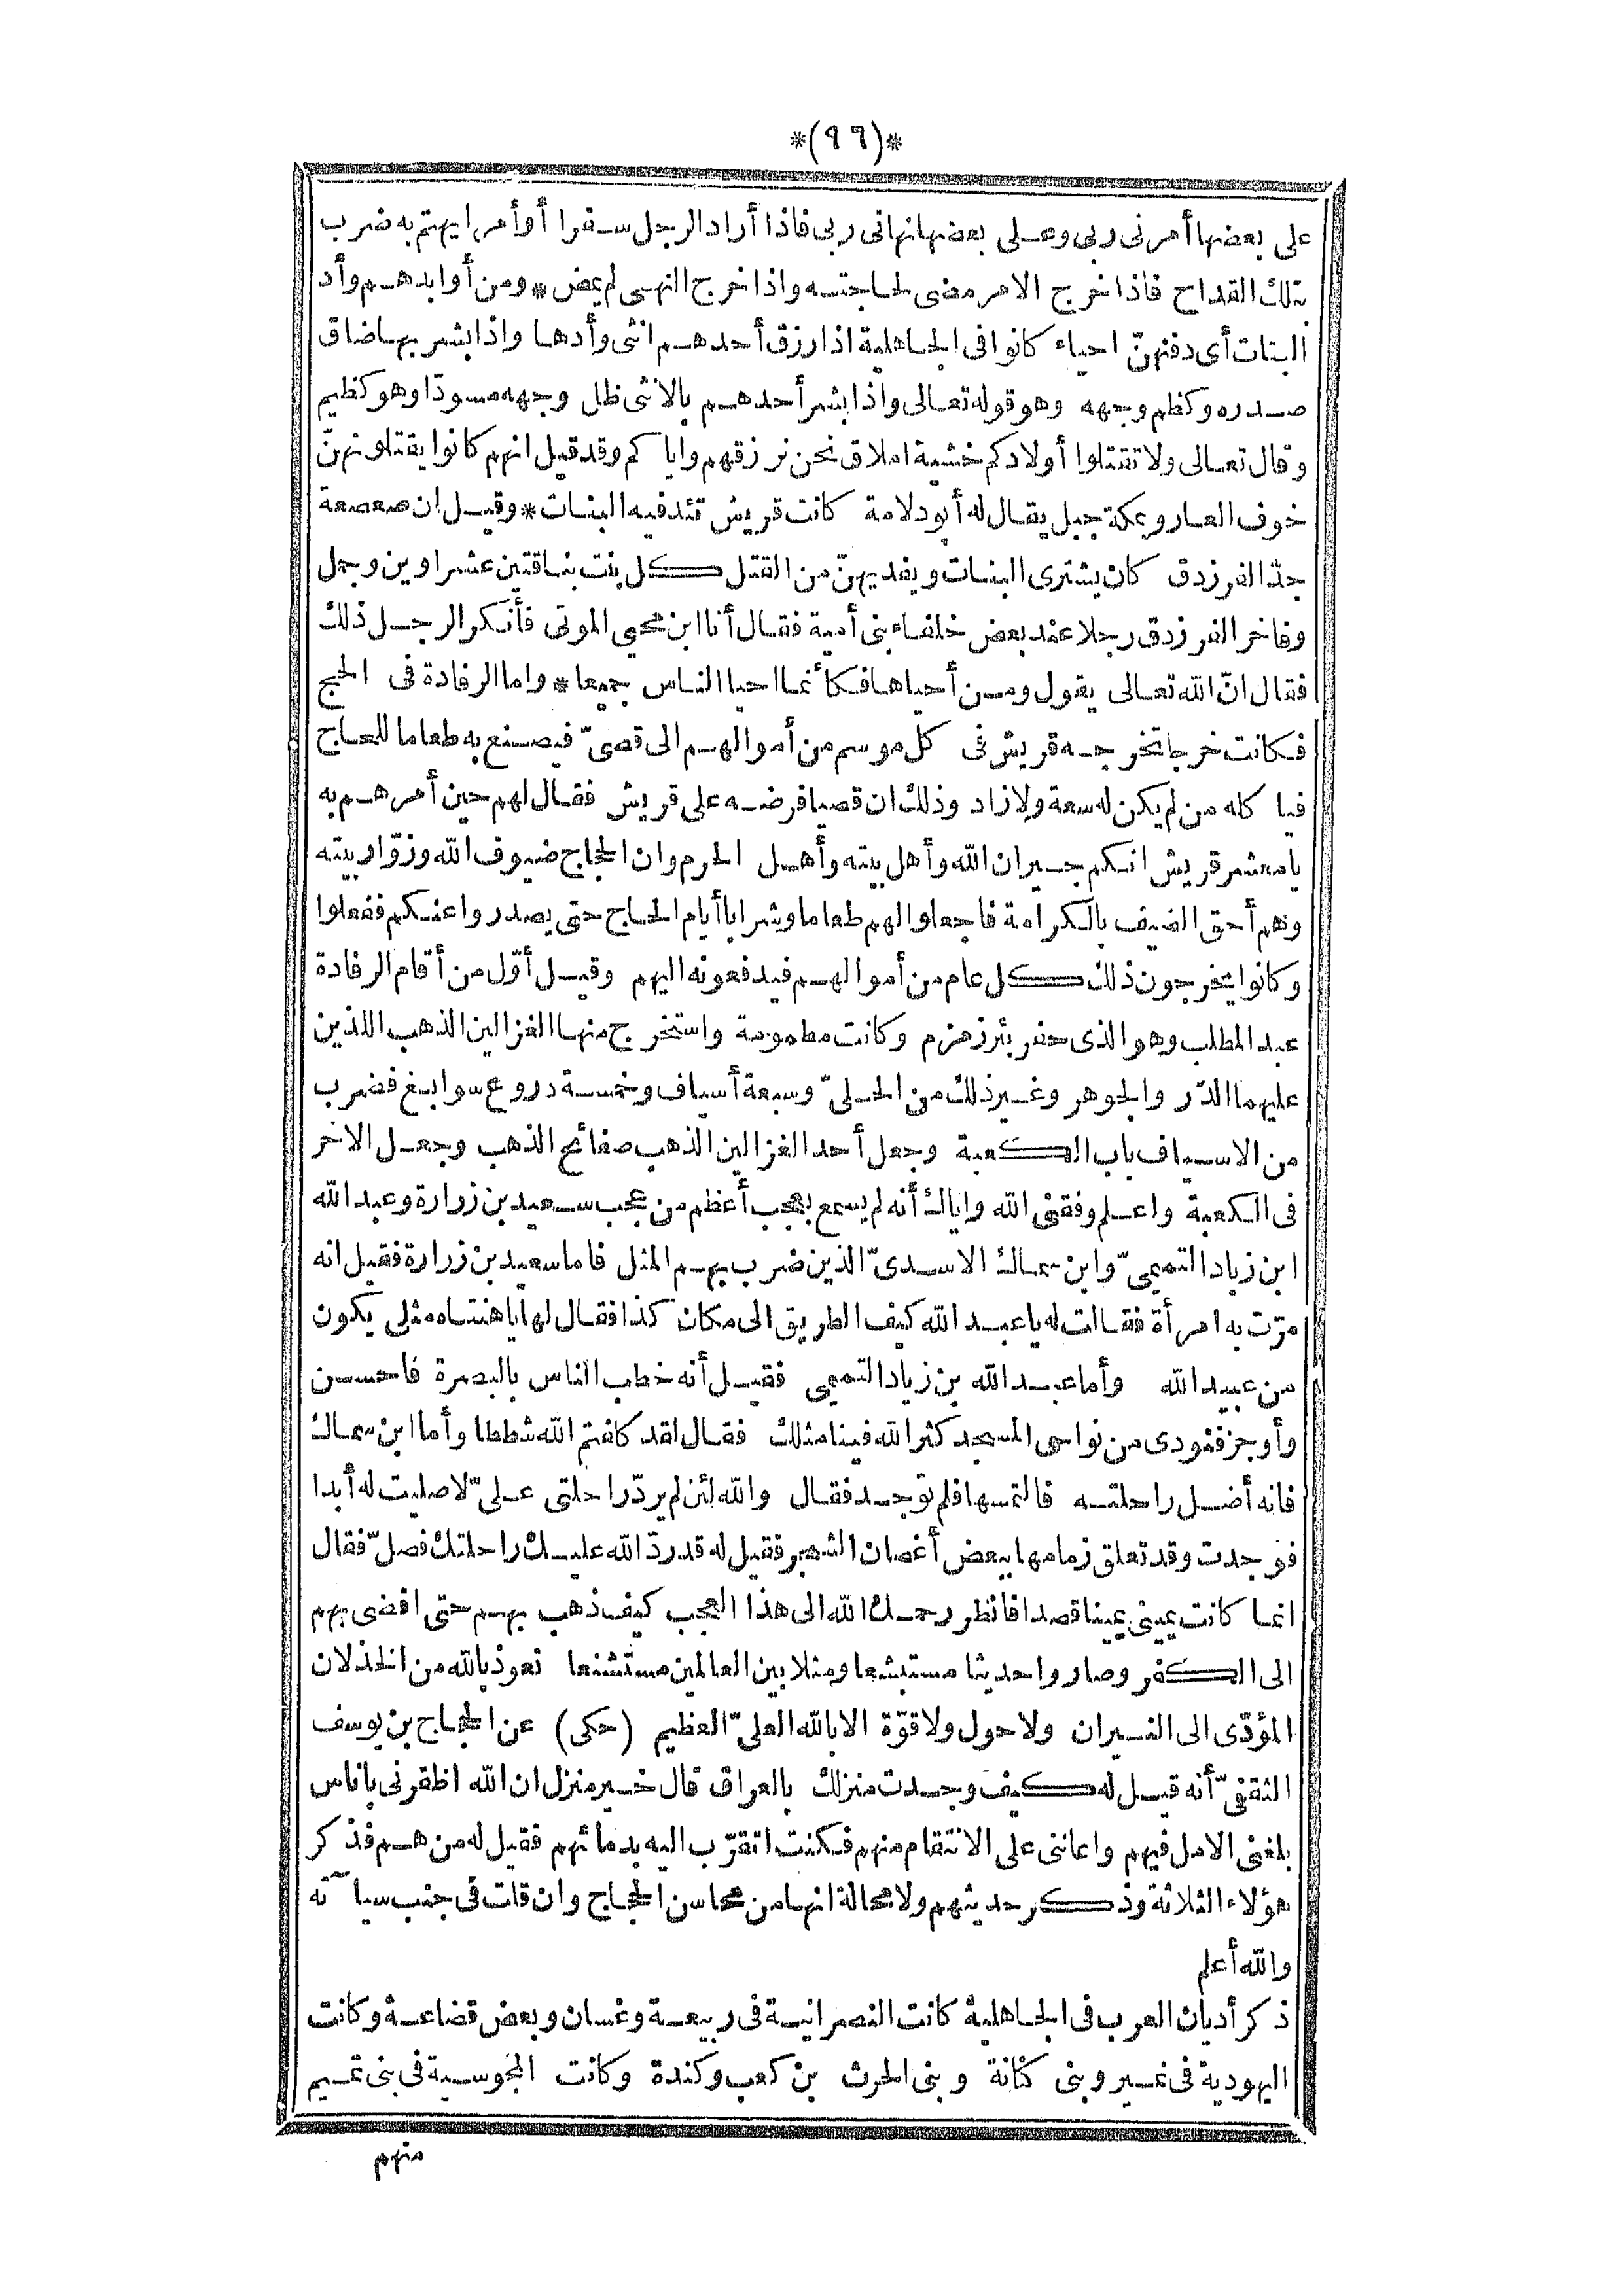 *(٩٦)*
على بعضها أمرنى ربى وعلى بعضها نهانى ربى فاذا أراد الرجل سفرا أوأمرا يهتم به ضرب
بتلك القداح فاذا خرج الامر مضى لحاجته واذا خرج النهى لم يمض * ومن أوابدهم وأد
البنات أى دفنهنّ احياء كانوا فى الجاهلية اذا رزق أحدهم انثى وأدها واذا بشر بها ضاق
صدره وكظم وجهه وهو قوله تعالى واذا بشر أحدهم بالانثى ظل وجهه مسودّا وهو كظيم
وقال تعالى ولا تقتلوا أولادكم خشية املاق نحن نرزقهم واياكم وقد قيل انهم كانوا يقتلونهنّ
خوف العار وبمكة جبل يقال له أبودلامة كانت قريش تئد فيه البنات * وقيل ان صعصعة
جدّ الفرزدق كان يشترى البنات ويفديهنّ من القتل كل بنت بناقتين عشراوين وجمل
وفاخر الفرزدق رجلا عند بعض خلفاء بنى أمية فقال أنا ابن محيى الموتى فأنكر الرجل ذلك
فقال انّ الله تعالى يقول ومن أحياها فكأنما احيا الناس جميعا * واما الرفادة فى الحج
فكانت خرجا تخرجه قريش فى كل موسم من أموالهم الى قصىّ فيصنع به طعاما للحاج
فيا كله من لم يكن له سعة ولا زاد وذلك ان قصيا فرضه على قريش فقال لهم حين أمرهم به
يامعشر قريش انكم جيران الله وأهل بيته وأهل الحرم وان الحجاج ضيوف الله وزوّار بيته
وهم أحق الضيف بالكرامة فاجعلوا لهم طعاما وشرابا أيام الحاج حتى يصدروا عنكم ففعلوا
وكانوا يخرجون ذلك كل عام من أموالهم فيدفعونه اليهم وقيل أوّل من أقام الرفادة
عبد المطلب وهو الذى حفر بئر زمزم وكانت مطمومة واستخرج منها الغزالين الذهب اللذين
عليهما الدّر والجوهر وغير ذلك من الحلىّ وسبعة أسياف وخمسة دروع سوابغ فضرب
من الاسياف باب الكعبة وجعل أحد الغزالين الذهب صفائح الذهب وجعل الاخر
فى الكعبة واعلم وفقنى الله واياك أنه لم يسمع بعجب أعظم من عجب سعيد بن زرارة وعبد الله
ابن زياد التميمىّ وابن سماك الاسدىّ الذين ضرب بهم المثل فاما سعيد بن زرارة فقيل انه
مرّت به امرأة فقالت له يا عبد الله كيف الطريق الى مكان كذا فقال لها يا هنتاه مثلى يكون
من عبيد الله وأما عبد الله بن زياد التميمى فقيل أنه خطب الناس بالبصرة فاحسن
وأوجز فنودى من نواحى المسجد كثر الله فينا مثلك فقال لقد كلفتم الله شططا وأما ابن سماك
فانه أضل راحلته فالتمسها فلم توجد فقال والله لئن لم يردّ راحلتى علىّ لا صليت له أبدا
فوجدت وقد تعلق زمامها ببعض أغصان الشجر فقيل له قد ردّ الله عليك راحلتك فصلّ فقال
انما كانت يمينى يمينا قصدا فانظر رحمك الله الى هذا العجب كيف ذهب بهم حتى افضى بهم
الى الكفر وصاروا حديثا مستبشعا ومثلا بين العالمين مستشنعا نعوذ بالله من الخذلان
المؤدّى الى النيران ولا حول ولا قوّة الا بالله العلىّ العظيم (حكى) عن الحجاج بن يوسف
الثقفىّ أنه قيل له كيف وجدت منزلك بالعراق قال خير منزل ان الله اظفرنى باناس
بلغنى الامل فيهم واعاننى على الانتقام منهم فكنت اتقرّب اليه بدمائهم فقيل له من هم فذكر
هؤلاء الثلاثة وذكر حديثهم ولا محالة انها من محاسن الحجاج وان قلت فى جنب سيا ٓته
والله أعلم
ذكر أديان العرب فى الجاهلية كانت النصرانية فى ربيعة وغسان وبعض قضاعة وكانت
اليهودية فى نمير وبنى كنانة وبنى الحرث بن كعب وكندة وكانت المجوسية فى بنى تميم
منهم